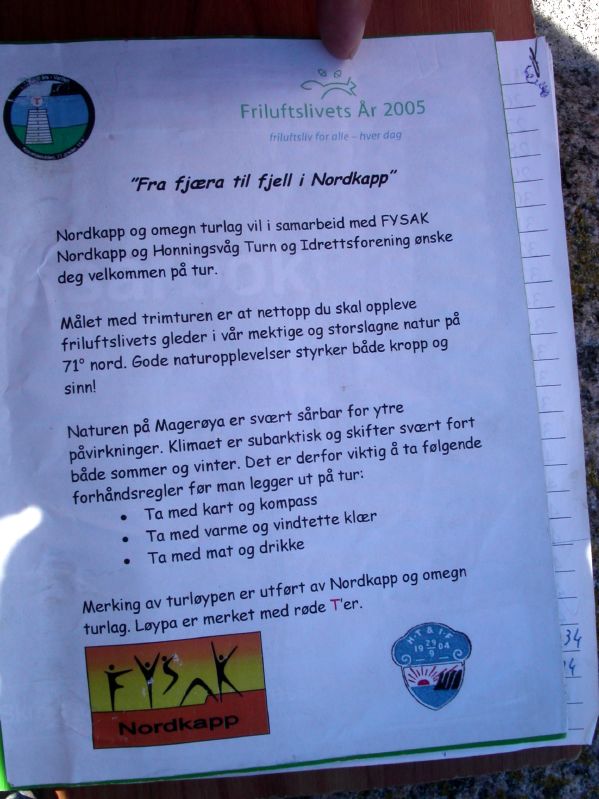 Friluftslivets År 2005
friluftsliv for alle – hver dag
"Fra fjæra til fjell i Nordkapp"
Nordkapp og omegn turlag vil i samarbeid med FYSAK
Nordkapp og Honningsvåg Turn og Idrettsforening ønske
deg velkommen på tur.
Målet med trimturen er at nettopp du skal oppleve
friluftslivets gleder i vår mektige og storslagne natur på
71° nord. Gode naturopplevelser styrker både kropp og
sinn!
Naturen på Magerøya er svært sårbar for ytre
påvirkninger. Klimaet er subarktisk og skifter svært fort
både sommer og vinter. Det er derfor viktig å ta følgende
forhåndsregler før man legger ut på tur:
• Ta med kart og kompass
• Ta med varme og vindtette klær
• Ta med mat og drikke
Merking av turløypen er utført av Nordkapp og omegn
turlag. Løypa er merket med røde T'er.
FYSAK
Nordkapp
H·T & I·F
19 29/9 04
34